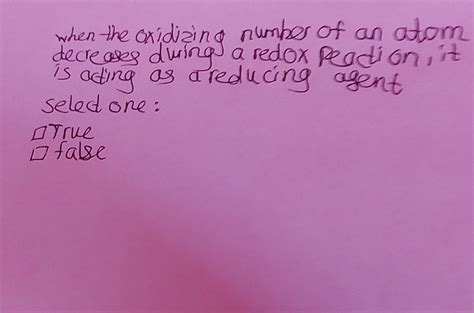 when the oxidizing number of an atom
decreases during a redox reaction, it
is acting as a reducing agent
select one:
□ True
□ false